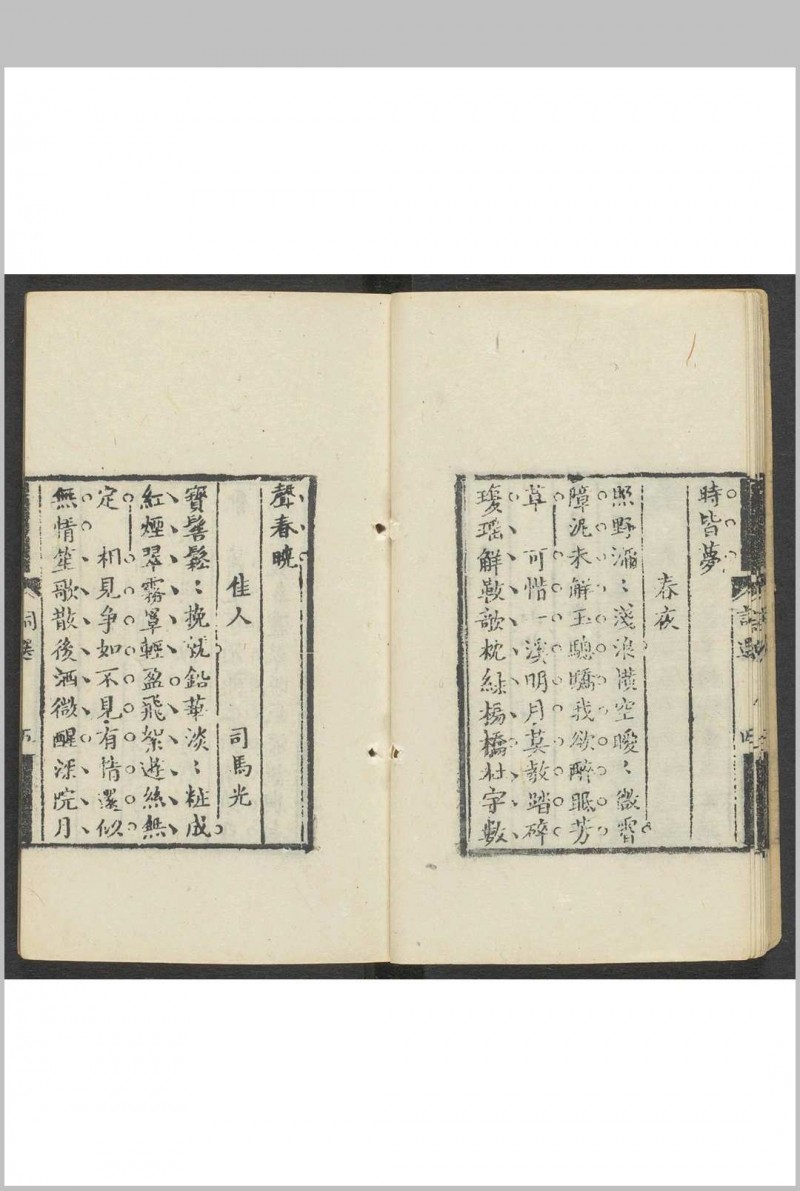 時皆夢
春夜
照野瀰〻淺浪橫空曖〻微霄
障泥未解玉驄驕我欲醉眠芳
草　可惜一溪明月莫教踏碎
瓊瑤解鞍欹枕綠楊橋杜宇數
聲春曉
佳人　司馬光
寶髻鬆〻挽就鉛華淡〻粧成
紅煙翠霧罩輕盈飛絮遊絲無
定　相見爭如不見有情還似
無情笙歌散後酒微醒深院月
詞選　五